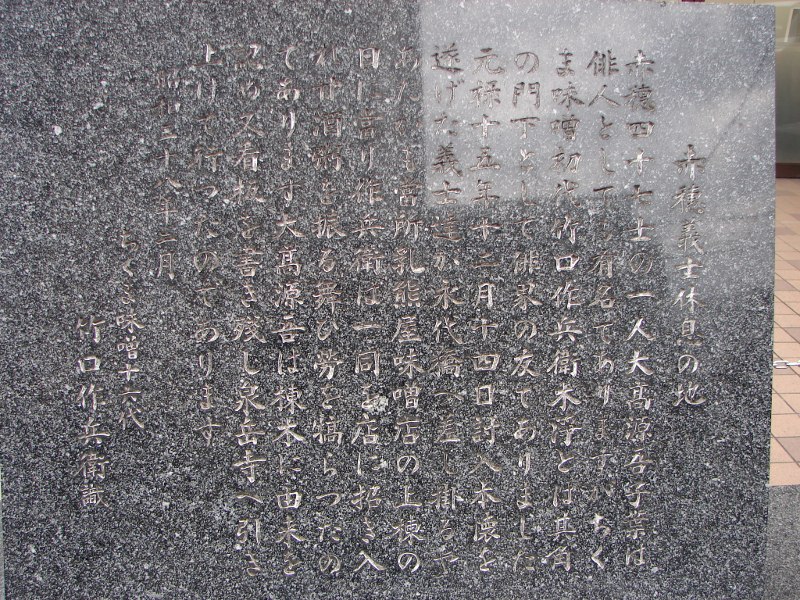 赤穂義士休息の地
赤穂四十七士の一人大高源吾子葉は
俳人としても有名でありますがちく
ま味噌初代竹口作兵衛木浄とは其角
の門下として俳界の友でありました
元禄十五年十二月十四日討入本懐を
遂げた義士達が永代橋へ差し掛るや
あたかも当所乳熊屋味噌店の上棟の
日に当り作兵衛は一同を店に招き入
れ甘酒粥を振る舞ひ労を犒らつたの
であります大高源吾は棟木に由来を
認め又看板を書き残し泉岳寺へ引き
上げて行つたのであります
昭和三十八年二月
ちくま味噌十六代
竹口作兵衛識